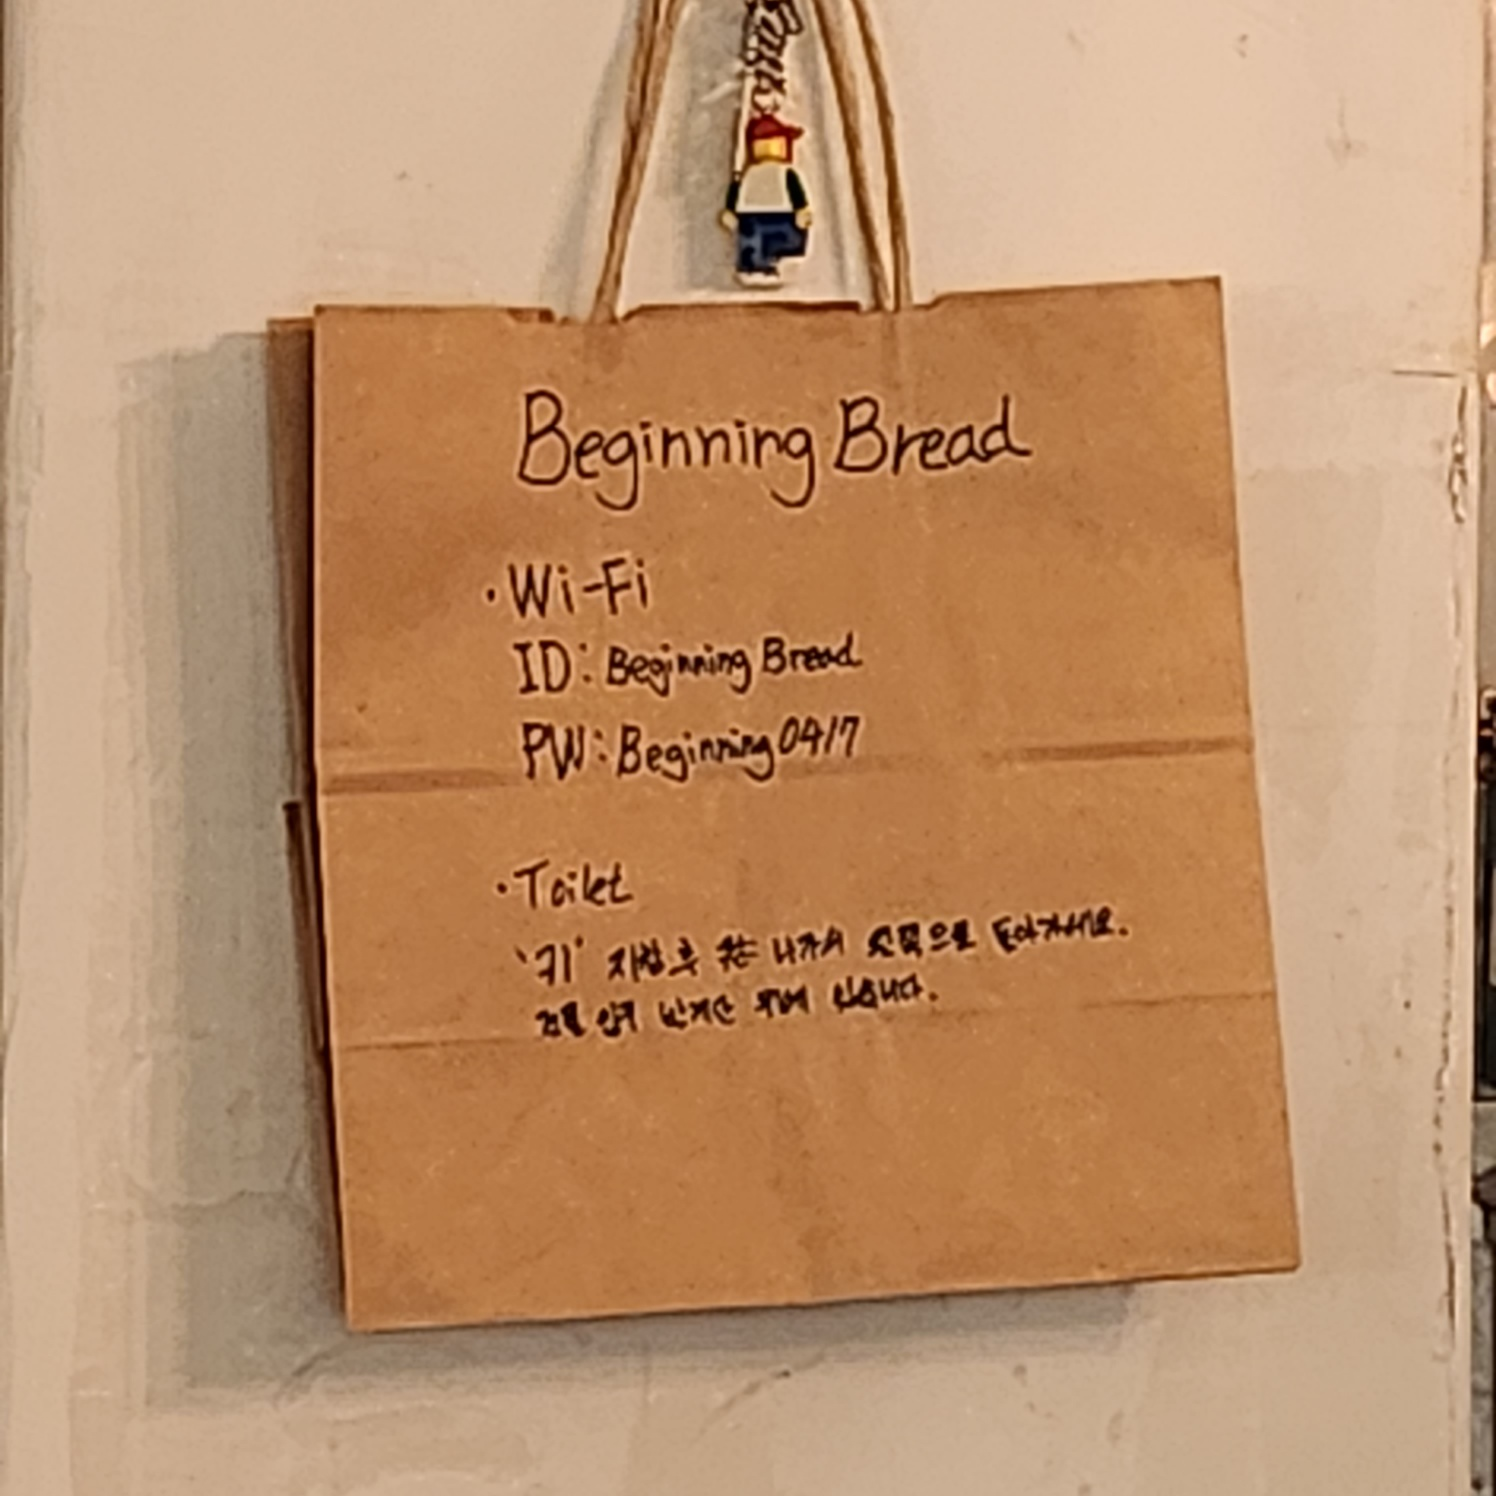 Beginning Bread
· Wi-Fi
ID: Beginning Bread
PW: Beginning0417
· Toilet
'키' 지참 후 나가서 으로 돌아가세요.
건물 입구 있습니다.